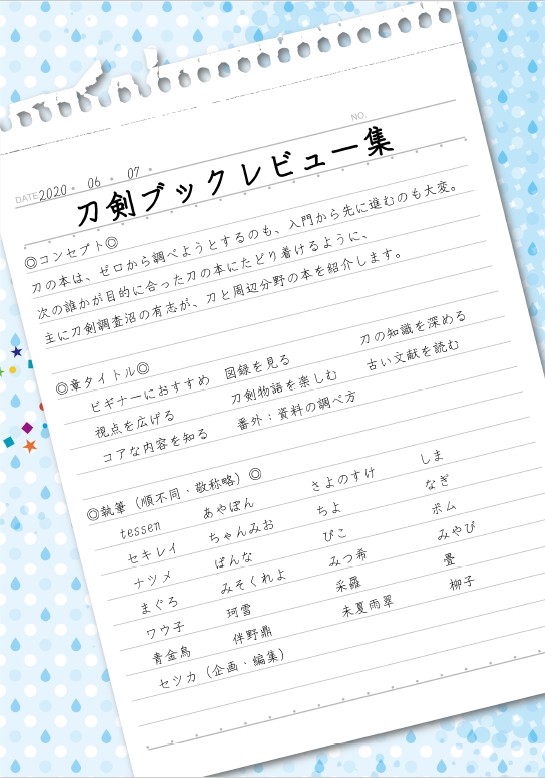 NO.
DATE 2020 . 06 . 07 .
刀剣ブックレビュー集
◎コンセプト◎
刀の本は、ゼロから調べようとするのも、入門から先に進むのも大変。
次の誰かが目的に合った刀の本にたどり着けるように、
主に刀剣調査沼の有志が、刀と周辺分野の本を紹介します。
◎章タイトル◎
ビギナーにおすすめ 図録を見る 刀の知識を深める
視点を広げる 刀剣物語を楽しむ 古い文献を読む
コアな内容を知る 番外：資料の調べ方
◎執筆（順不同・敬称略）◎
tessen あやぽん さよのすけ しま
セキレイ ちゃんみお ちよ なぎ
ナツメ ばんな ぴこ ポム
まぐろ みそくれよ みつ希 みやび
ワウ子 珂雪 采羅 畳
青金鳥 伴野鼎 未夏雨翠 柳子
セツカ（企画・編集）